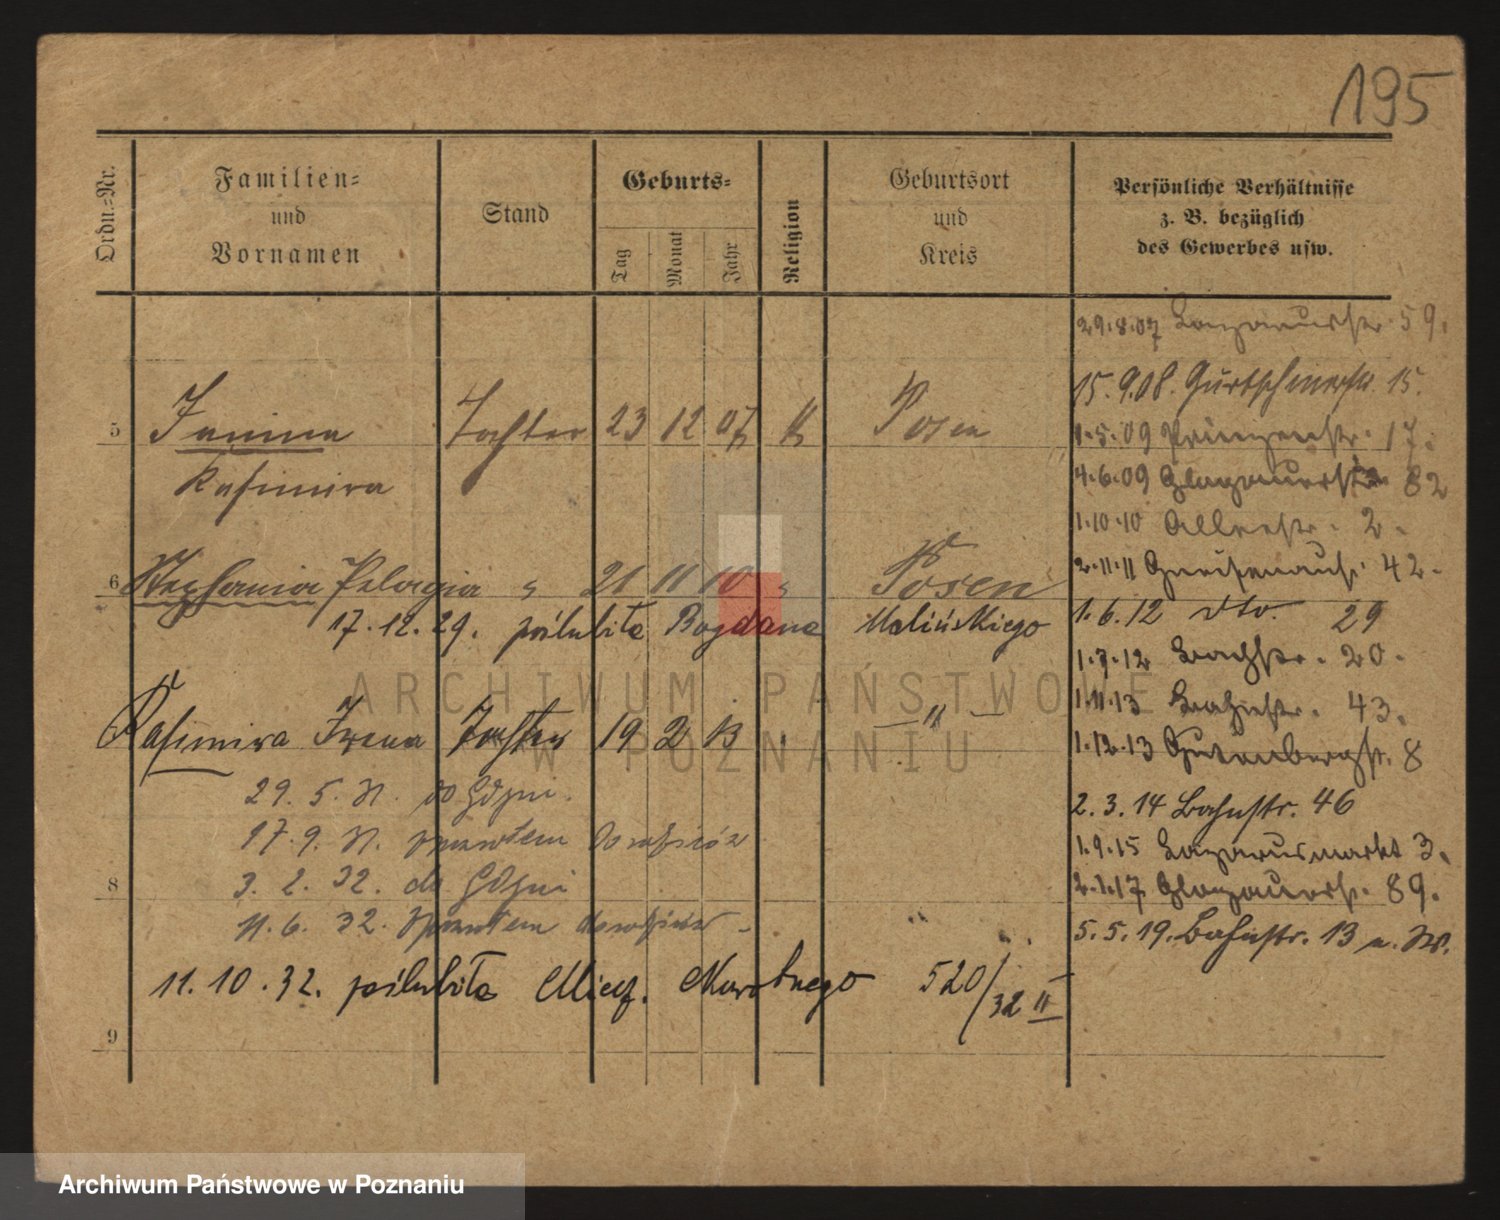 195
Ordn.-Nr.
Familien-
und
Vornamen
Stand
Geburts-
Tag
Monat
Jahr
Religion
Geburtsort
und
Kreis
Persönliche Verhältnisse
z. B. bezüglich
des Gewerbes usw.
29.8.07 Lazarusstr. 59.
15.9.08. Gurtschinerstr. 15.
5 Janina Tochter 23 12 07 k Posen
1.5.09 Prinzenstr. 17.
Kasimira
4.6.09 Glogauerstr. 82
1.10.10 Alleestr. 2.
2.11.11 Gneisenaustr. 42.
6 Stephania Pelagia " 21 11 10 " Posen
17.12.29. poślubiła Bogdana Malińskiego
1.6.12 dto. 29
1.7.12 Bachstr. 20.
1.11.13 Bahnstr. 43.
Kasimira Irena Tochter 19 2 13 . — " —
1.12.13 Gutenbergstr. 8
29. 5. 31. do Gdyni.
2.3.14 Bahnstr. 46
17. 9. 31. spowrotem
1.9.15 Lazarusmarkt 3.
8 3. 2. 32. do Gdyni
2.1.17 Glogauerstr. 89.
11. 6. 32. spowrotem
5.5.19. Bahnstr. 13 u. W.
11.10.32. poślubiła Miecz. 520/32 II
9
ARCHIWUM PAŃSTWOWE
W POZNANIU
Archiwum Państwowe w Poznaniu